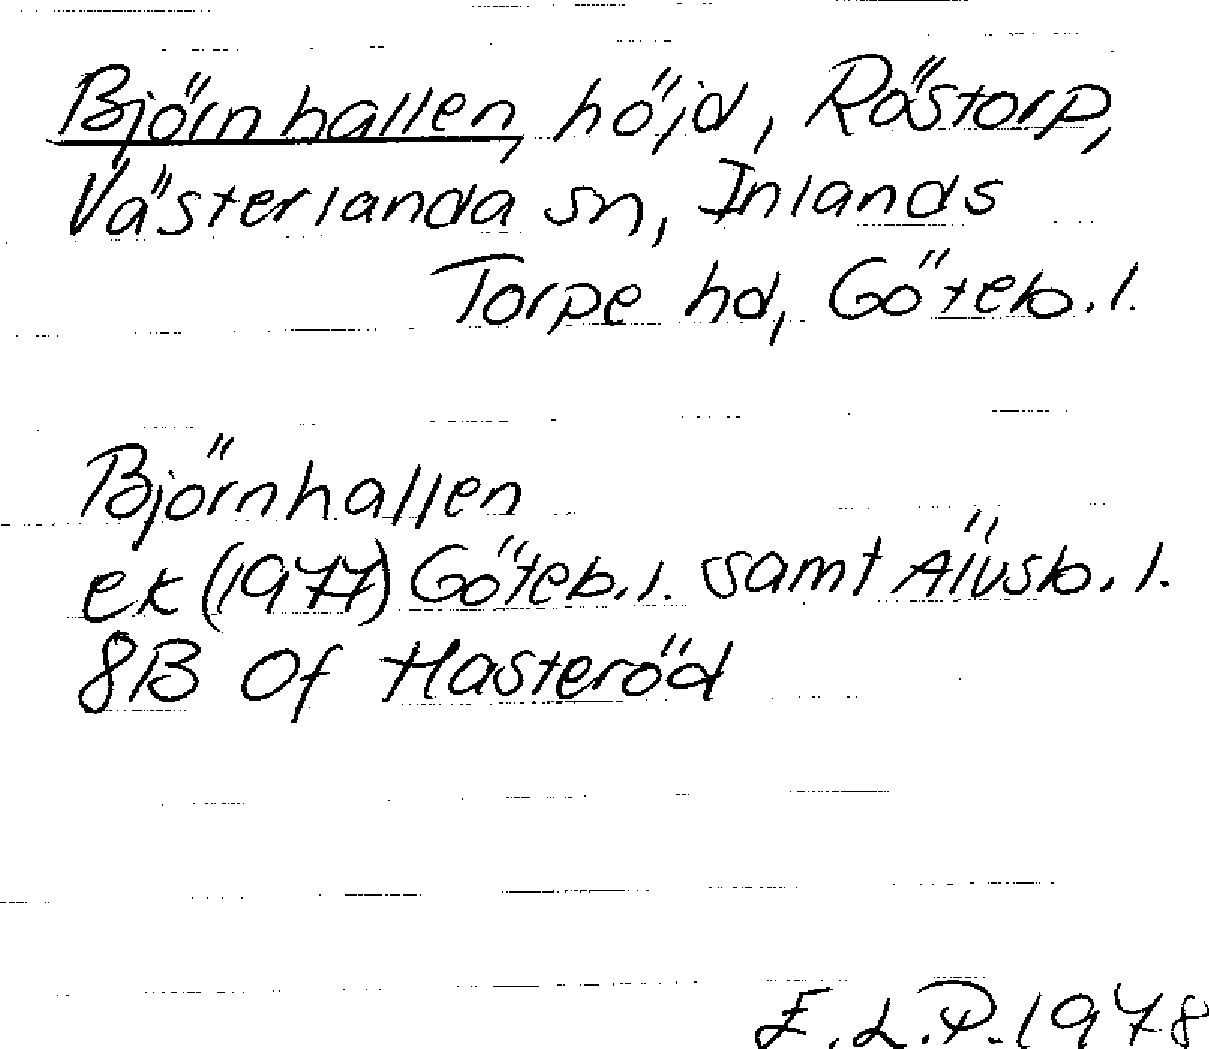 Björnhallen, höjd, Rästorp,
Västerlanda sn, Inlands
Torpe hd, Göteb. l.
Björnhallen
ek (1977) Göteb. l. samt Älvsb. l.
8B 0f Hasteröd
E. L. P. 1978